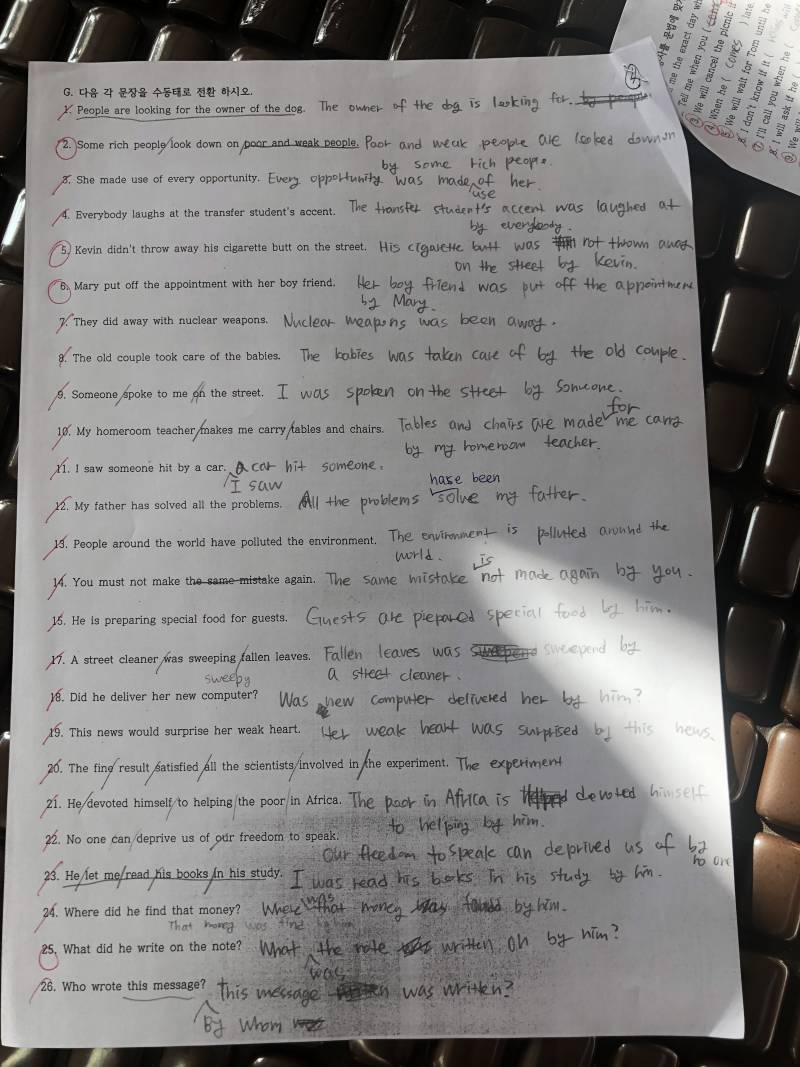 G. 다음 각 문장을 수동태로 전환 하시오.
1. People are looking for the owner of the dog. The owner of the dog is looking for.
2. Some rich people look down on poor and weak people. Poor and weak people are looked down on
by some rich people.
3. She made use of every opportunity. Every opportunity was made use of her.
4. Everybody laughs at the transfer student's accent. The transfer student's accent was laughed at
by everybody.
5. Kevin didn't throw away his cigarette butt on the street. His cigarette butt was not thrown away
on the street by Kevin.
6. Mary put off the appointment with her boy friend. Her boy friend was put off the appointment
by Mary.
7. They did away with nuclear weapons. Nuclear weapons was been away.
8. The old couple took care of the babies. The babies was taken care of by the old couple.
9. Someone spoke to me on the street. I was spoken on the street by someone.
10. My homeroom teacher makes me carry tables and chairs. Tables and chairs are made for me carry
by my homeroom teacher.
11. I saw someone hit by a car. I saw a car hit someone.
12. My father has solved all the problems. All the problems hase been solve my father.
13. People around the world have polluted the environment. The environment is polluted around the
world.
14. You must not make the same mistake again. The same mistake is not made again by you.
15. He is preparing special food for guests. Guests are piepared special food by him.
17. A street cleaner was sweeping fallen leaves. Fallen leaves was sweepend by
sweepy a street cleaner.
18. Did he deliver her new computer? Was new computer delivered her by him?
19. This news would surprise her weak heart. Her weak heart was surprised by this news.
20. The fine result satisfied all the scientists involved in the experiment. The experiment
21. He devoted himself to helping the poor in Africa. The poor in Africa is devoted himself
to helping by him.
22. No one can deprive us of our freedom to speak.
Our freedom to speak can deprived us of by
no one
23. He let me read his books in his study. I was read his books in his study by him.
24. Where did he find that money? Where was that money found by him.
That money was find by him
25. What did he write on the note? What was the note written on by him?
26. Who wrote this message? By whom this message was written?
Tell me when you (
We will cancel the picnic if
When he ( comes ) late
We will wait for Tom until he
I don't know if it (
I'll call you when he (
I will ask if he (
We will